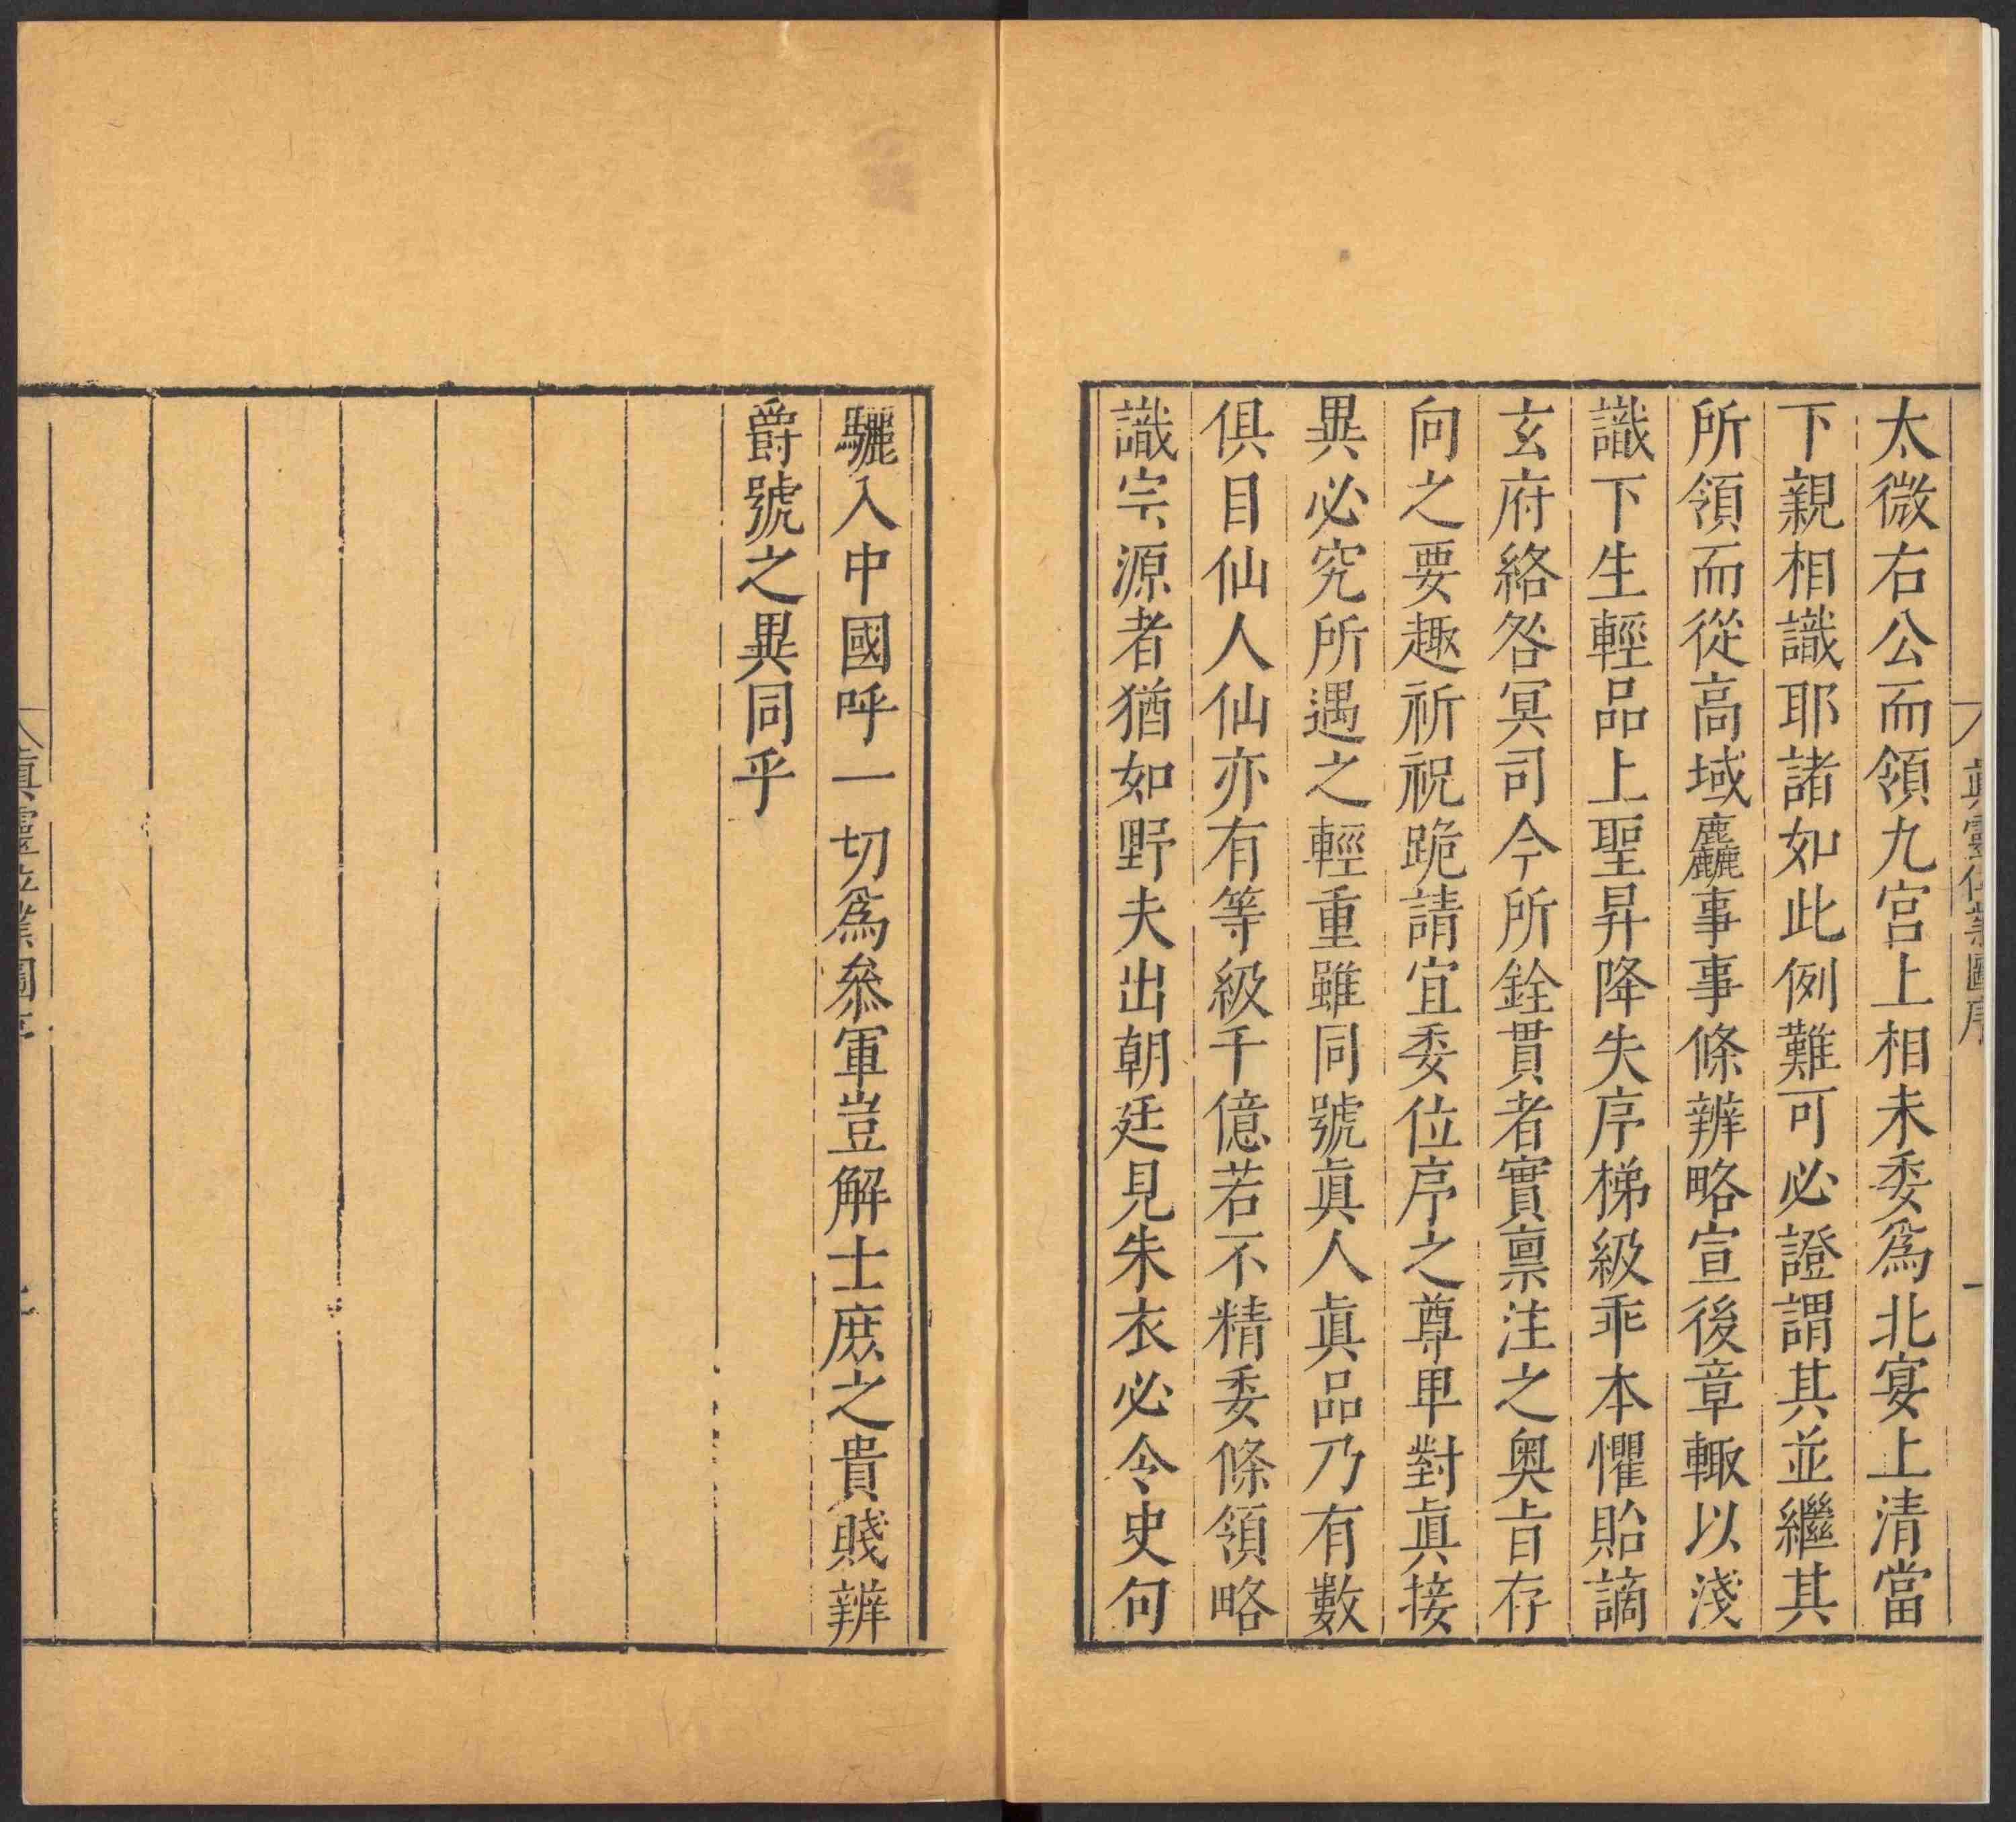 真靈位業圖序
一
太微右公而領九宮上相未委為北宴上清當
下親相識耶諸如此例難可必證謂其並繼其
所領而從高域麤事事條辨略宣後章輙以淺
識下生輕品上聖昇降失序梯級乖本懼貽謫
玄府絡咎冥司今所銓貫者實稟注之奥旨存
向之要趣祈祝跪請宜委位序之尊卑對眞接
異必究所遇之輕重雖同號眞人眞品乃有數
俱目仙人仙亦有等級千億若不精委條領略
識宗源者猶如野夫出朝廷見朱衣必令史句
驪入中國呼一切爲叅軍豈解士庶之貴賤辨
爵號之異同乎
眞靈位業圖序